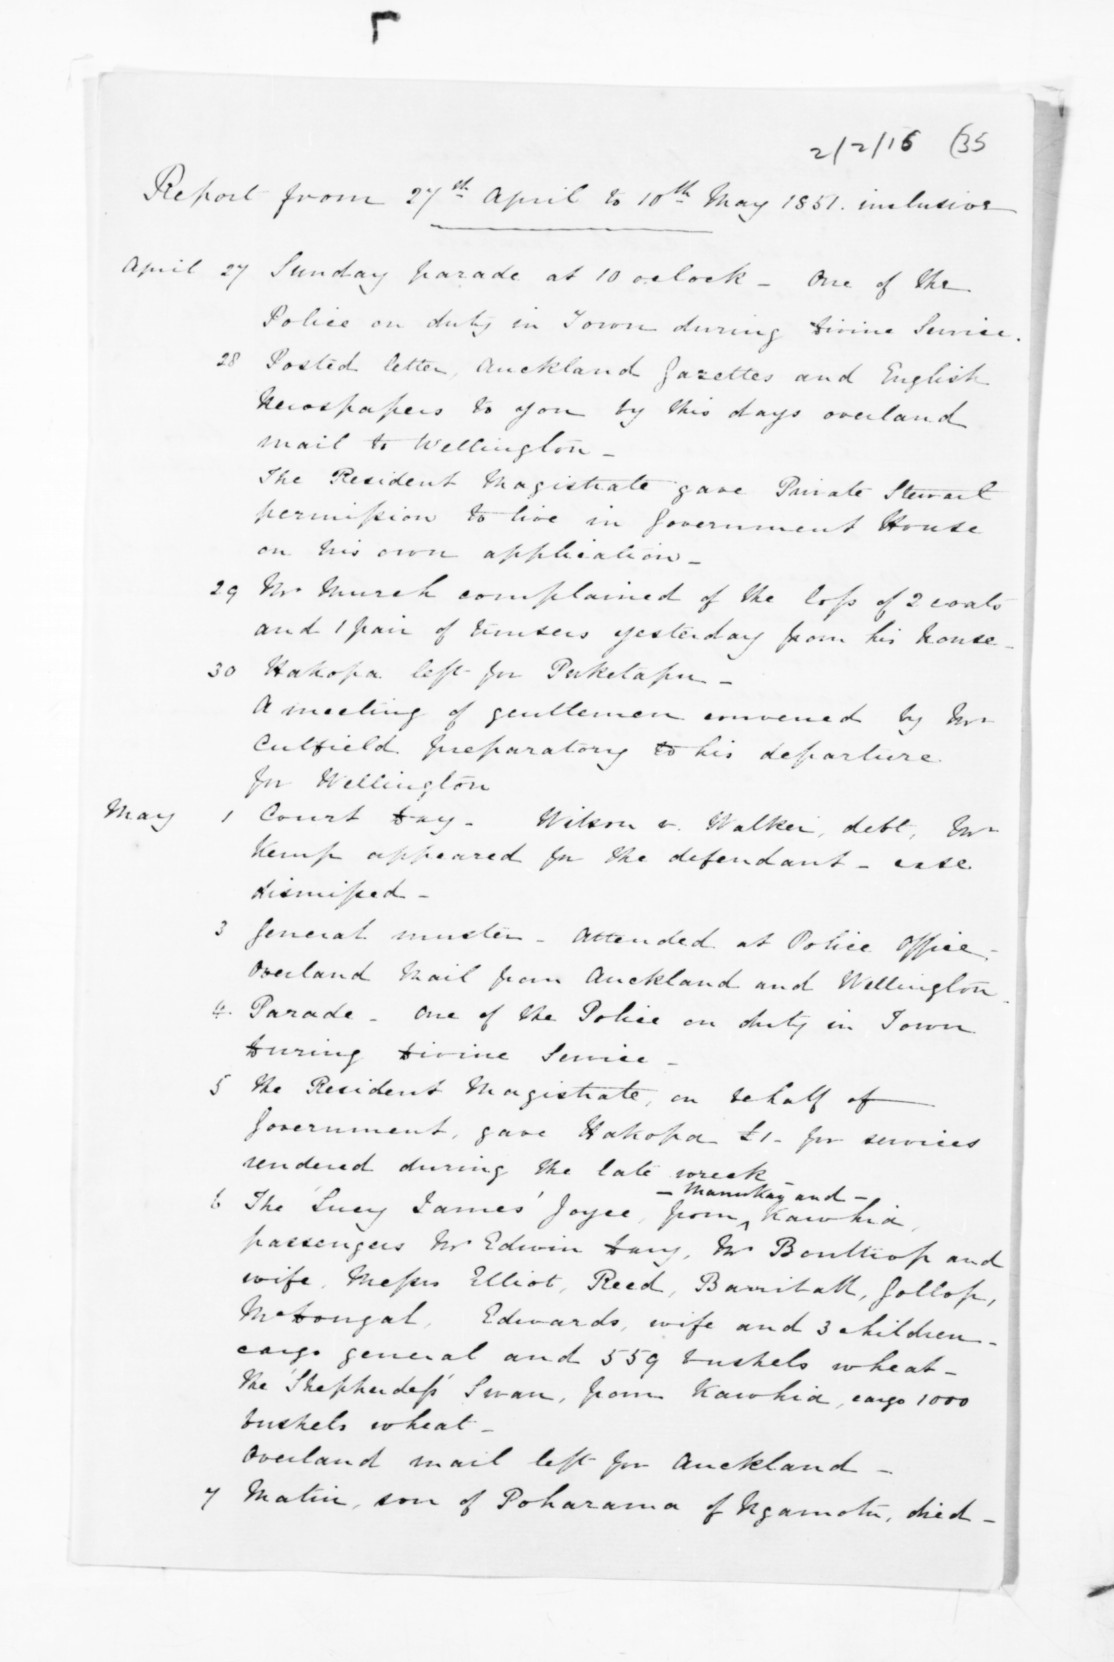 2/2/15 (35
Report from 27th April to 10th May 1851. inclusive
April 27 Sunday parade at 10 oclock - One of the
Police on duty in Town during Divine Service.
28 Posted letter, Auckland Gazettes and English
Newspapers to you by this days overland
mail to Wellington -
The Resident Magistrate gave Private Stewart
permission to live in Government House
on his own application -
29 Mr Murch complained of the loss of 2 coats
and 1 pair of trousers yesterday from his house -
30 Hakopa left for Puketapu -
A meeting of gentlemen convened by Mr
Cutfield preparatory to his departure
for Wellington
May 1 Court Day - Wilson v. Walker, debt, Mr
Kemp appeared for the defendant - case
dismissed -
3 General muster - Attended at Police Office -
Overland Mail from Auckland and Wellington -
4. Parade - One of the Police on duty in Town
During Divine Service -
5 The Resident Magistrate, on behalf of
Government, gave Hakopa £1 - for services
rendered during the late wreck
- Manukau and -
6 The 'Lucy James' Joyce, from Kawhia,
passengers Mr Edwin Davy, Mr and
wife, Messrs Elliot, Reed, Gollop,
McDongal, Edwards, wife and 3 children -
cargo general and 559 bushels wheat -
The 'Shepherdess' Swan, from Kawhia, cargo 1000
bushels wheat -
Overland mail left for Auckland -
7 Matiu, son of Poharama of Ngamotu, died -